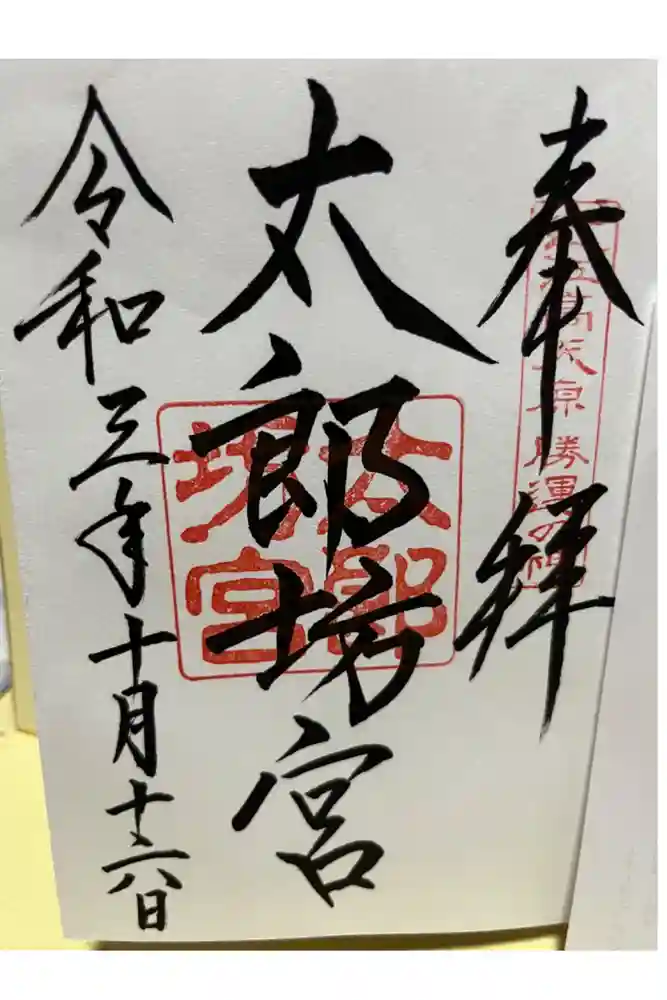 奉拝
高天原 勝運の神
太郎坊宮
太郎坊宮
令和三年十月十六日